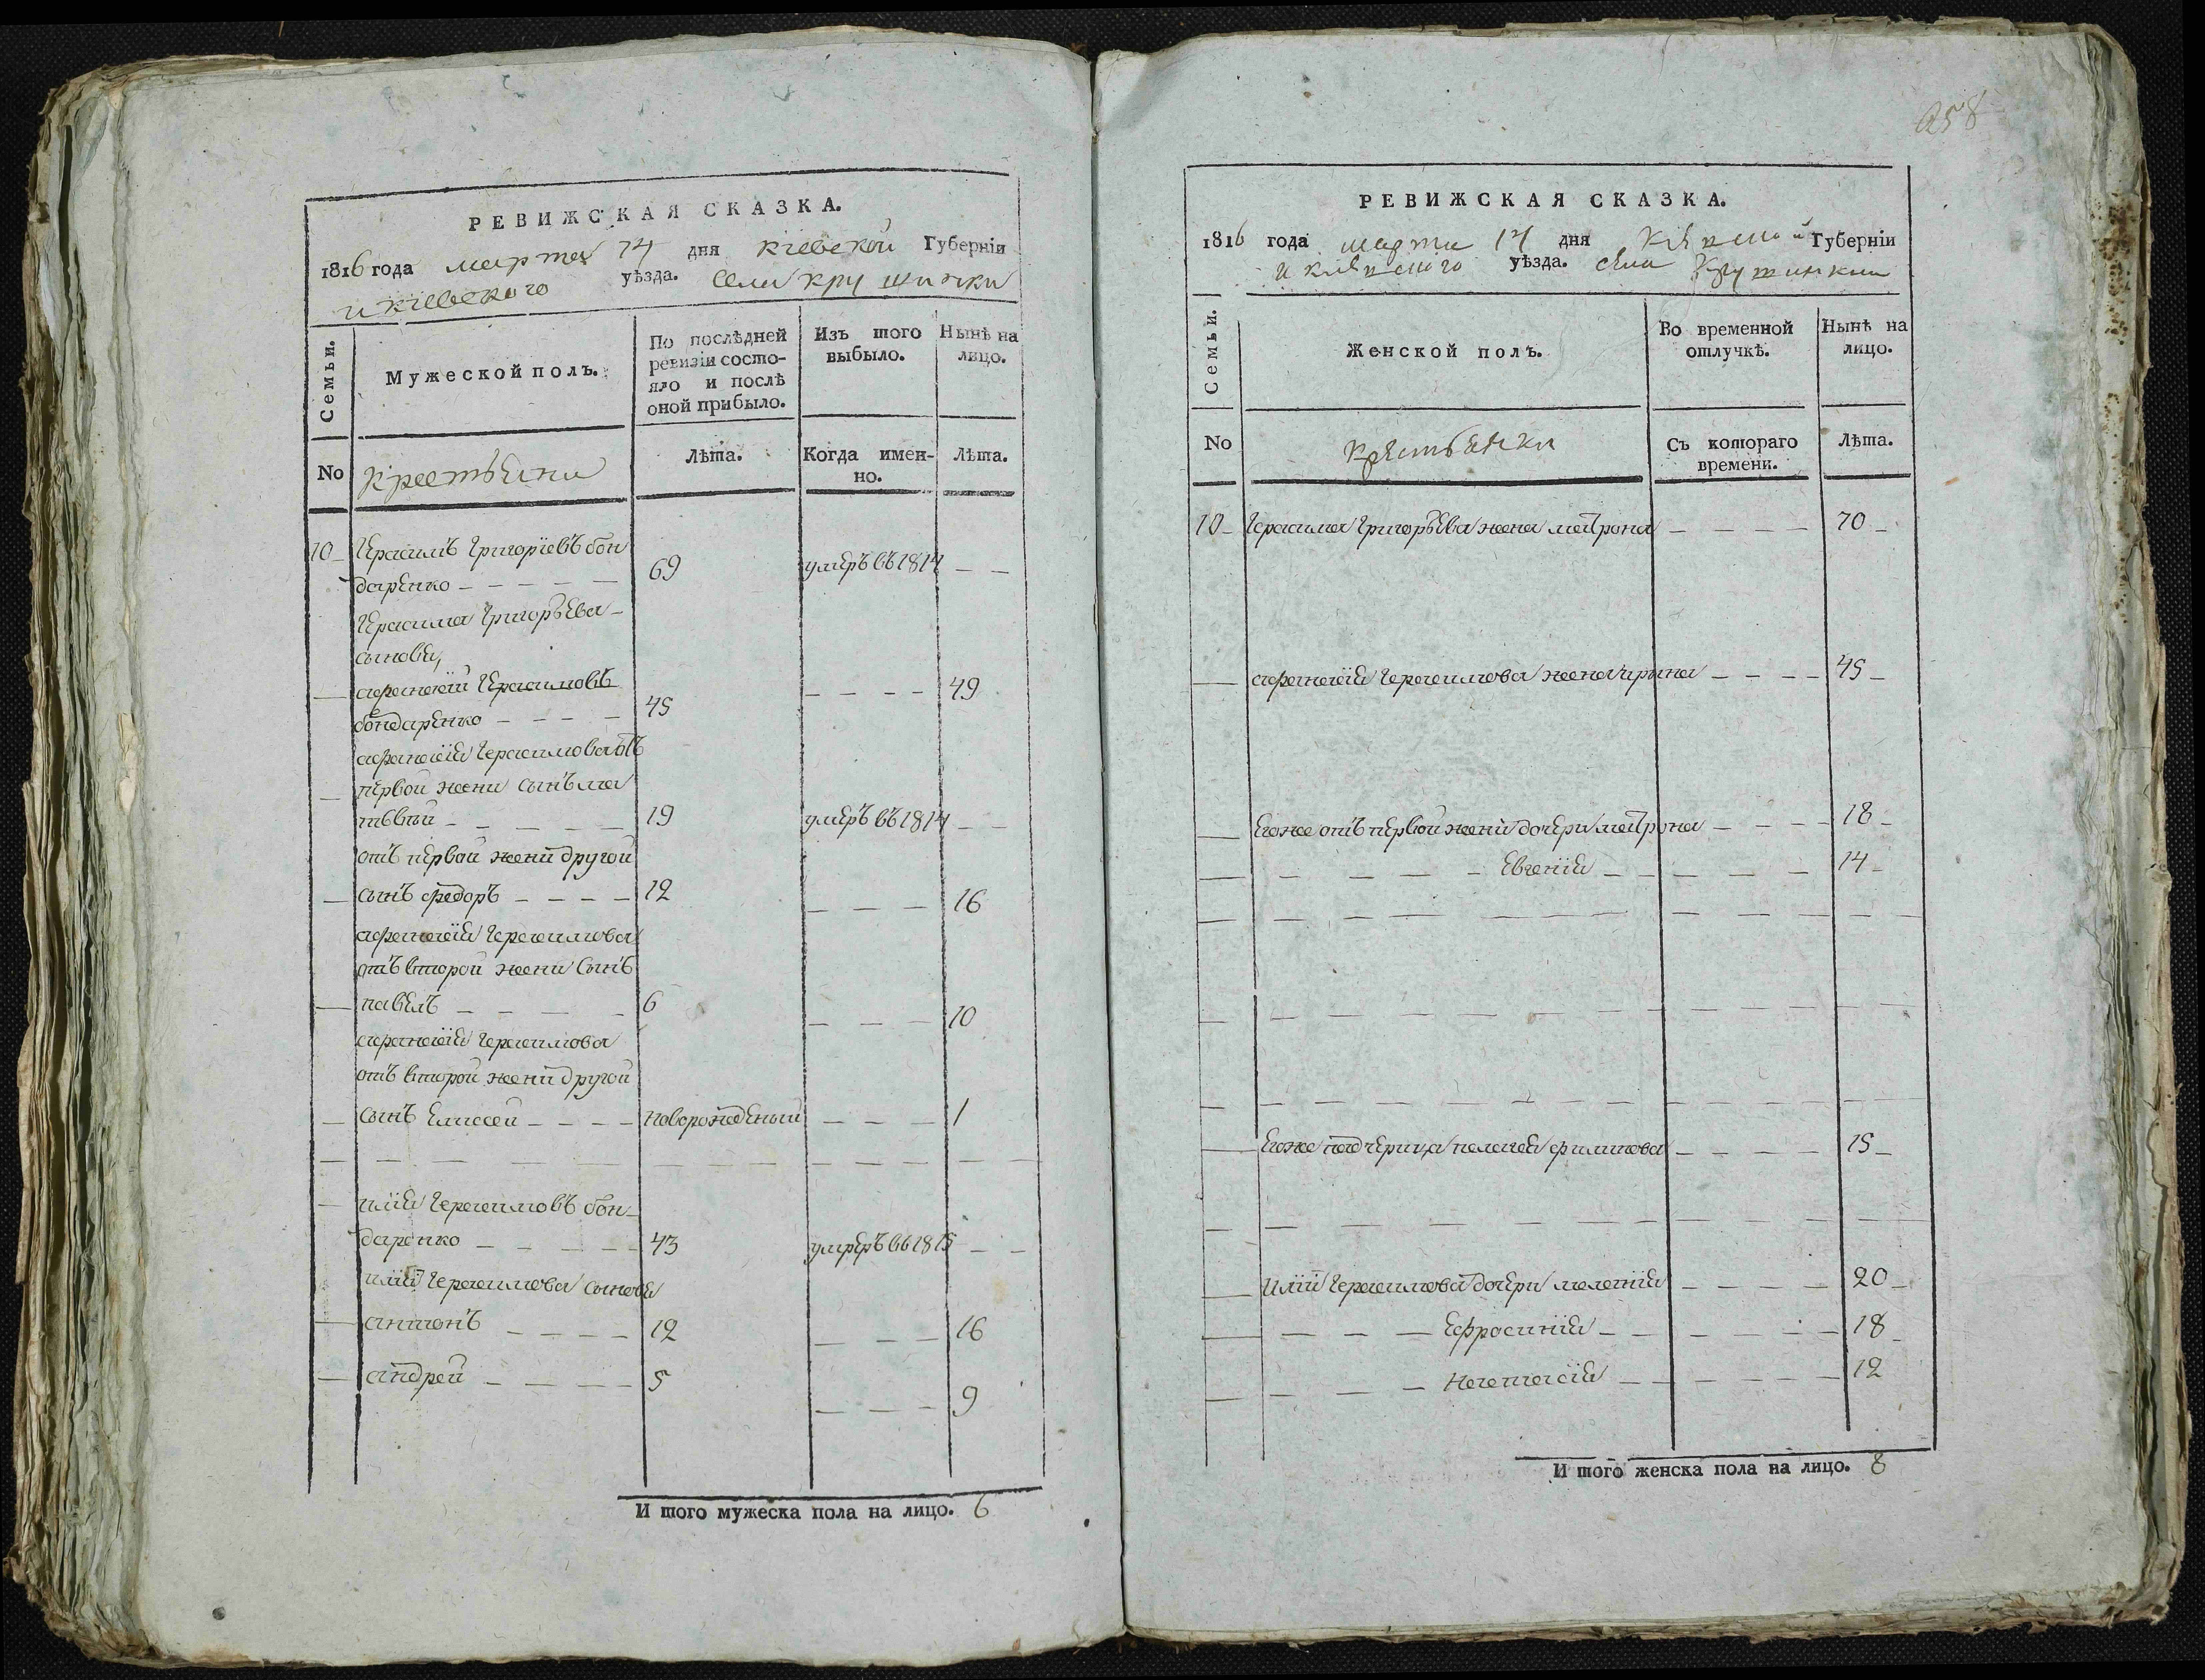 РЕВИЖСКАЯ СКАЗКА.
1816 года марта 14 дня кіевской Губерніи
и кіевского уѣзда. села кружички
Семьи.
Мужеской полъ.
По послѣдней ревизіи состояло и послѣ оной прибыло.
Изъ того выбыло.
Нынѣ на лицо.
No
крестьяни
Лѣта.
Когда именно.
Лѣта.
10 Герасимъ Григоріевъ бон
даренко 69 умеръ въ 1814
Герасима Григорьева
сыновя,
афанасій Герасимовъ
бондаренко 45 49
афанасія Герасимова отъ
первой жени сынъ ма
твѣй 19 умеръ въ 1814
отъ первой жени другой
сынъ федоръ 12 16
афанасія Герасимова
отъ второй жени сынъ
павелъ 6 10
афанасія Герасимова
отъ второй жени другой
сынъ Елисей новорожденый 1
илія Герасимовъ бон
даренко 43 умреръ въ 1815
иліи Герасимова сыновя
антонъ 12 16
андрей 5 9
И того мужеска пола на лицо. 6
258
РЕВИЖСКАЯ СКАЗКА.
1816 года марта 14 дня Кіевской Губерніи
и кіевского уѣзда. села
Семьи.
Женской полъ.
Во временной отлучкѣ.
Нынѣ на лицо.
No
крестьянки
Съ котораго времени.
Лѣта.
10 Герасима Григорьева жена матрона 70
афанасія Герасимова жена ирина 45
Егоже отъ первой жени дочери матрона 18
Евгенія 14
Егоже подчерица пелагея филипова 15
Иліи Герасимова дочери маланія 20
Ефросинія 18
Настасія 12
И того женска пола на лицо. 8